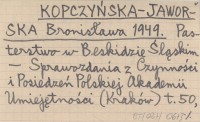 KOPCZYŃSKA-JAWOR-
SKA Bronisława 1949. Pa-
sterstwo w Beskidzie Śląskim
— Sprawozdania z Czynności
i Posiedzeń Polskiej Akademii
Umiejętności (Kraków) t. 50,